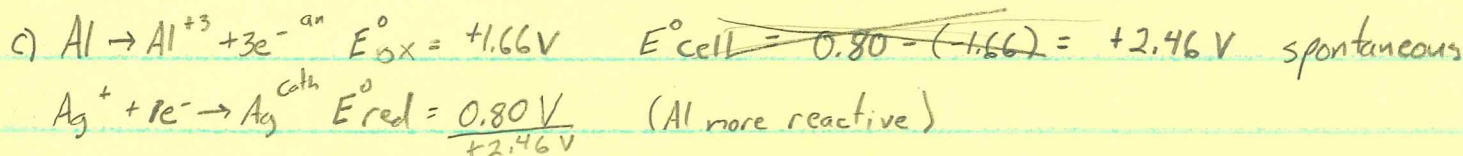 c) Al → Al⁺³ + 3e⁻ an E°ox = +1.66 V E°cell = 0.80 - (-1.66) = +2.46 V spontaneous
Ag⁺ + 1e⁻ → Ag cath E°red = 0.80 V (Al more reactive)
+2.46 V